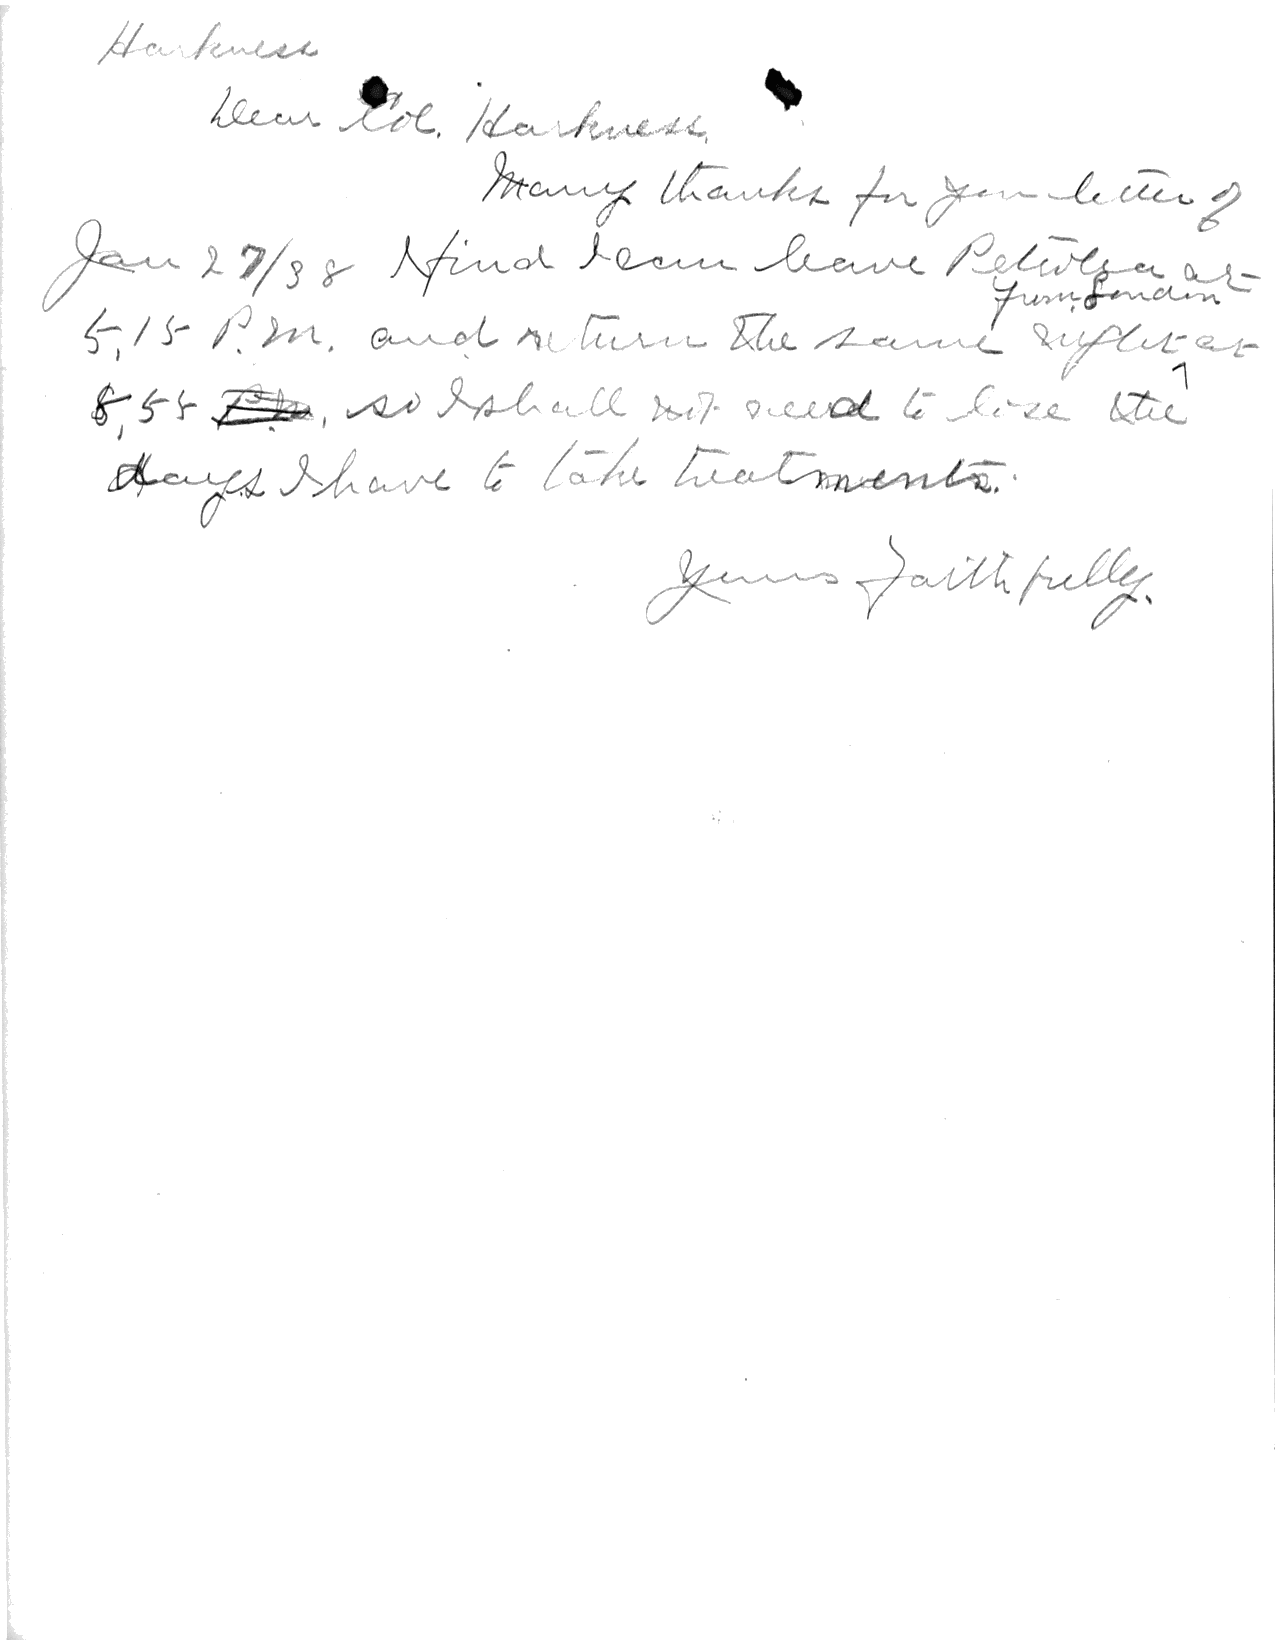 Harkness
Dear Col. Harkness,
Many thanks for your letter of
Jan 27/38 I find I can leave Petrolea at
from London
5,15 P.M. and return the same night at
8,55 P.M., so I shall not need to lose the
days I have to take treatments.
Yours Faithfully.